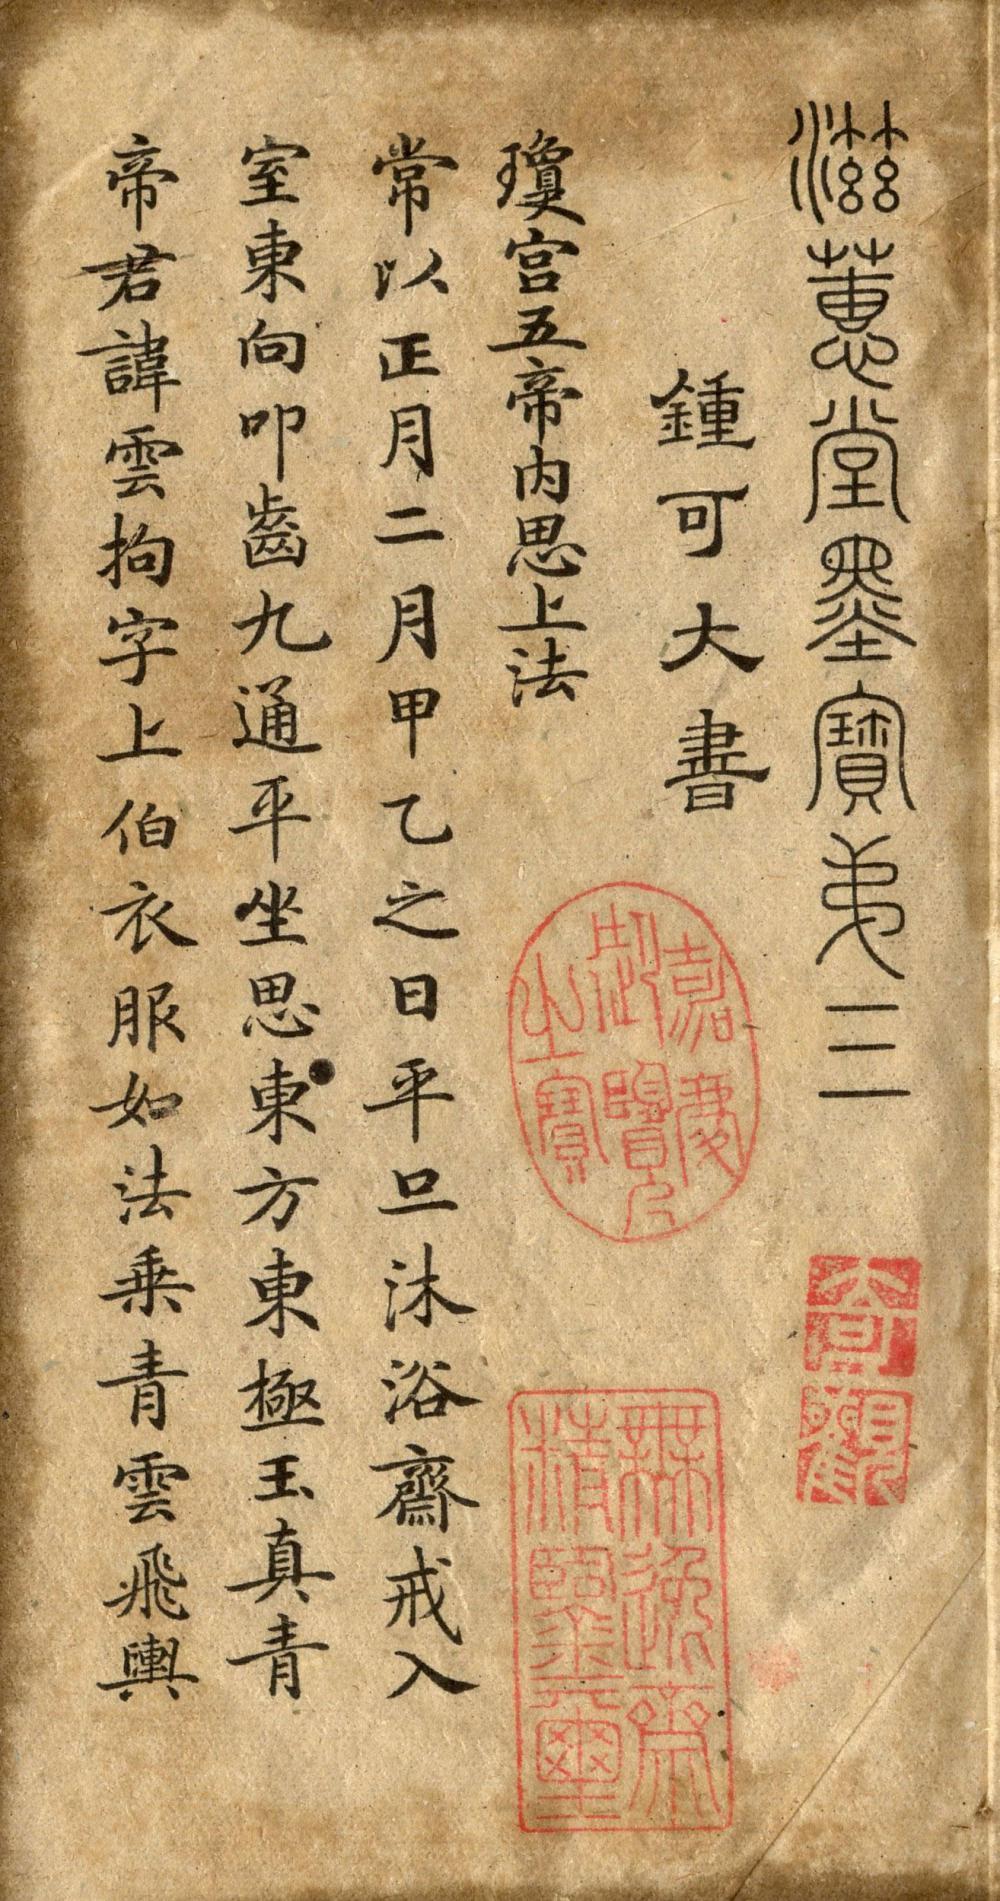 滋蕙堂墨寶第三
鍾可大書
瓊宫五帝内思上法
常以正月二月甲乙之日平旦沐浴齋戒入
室東向叩齒九通平坐思東方東極玉真青
帝君諱雲拘字上伯衣服如法乗青雲飛輿
嘉慶御覽之寶
無逸齋精鑒璽